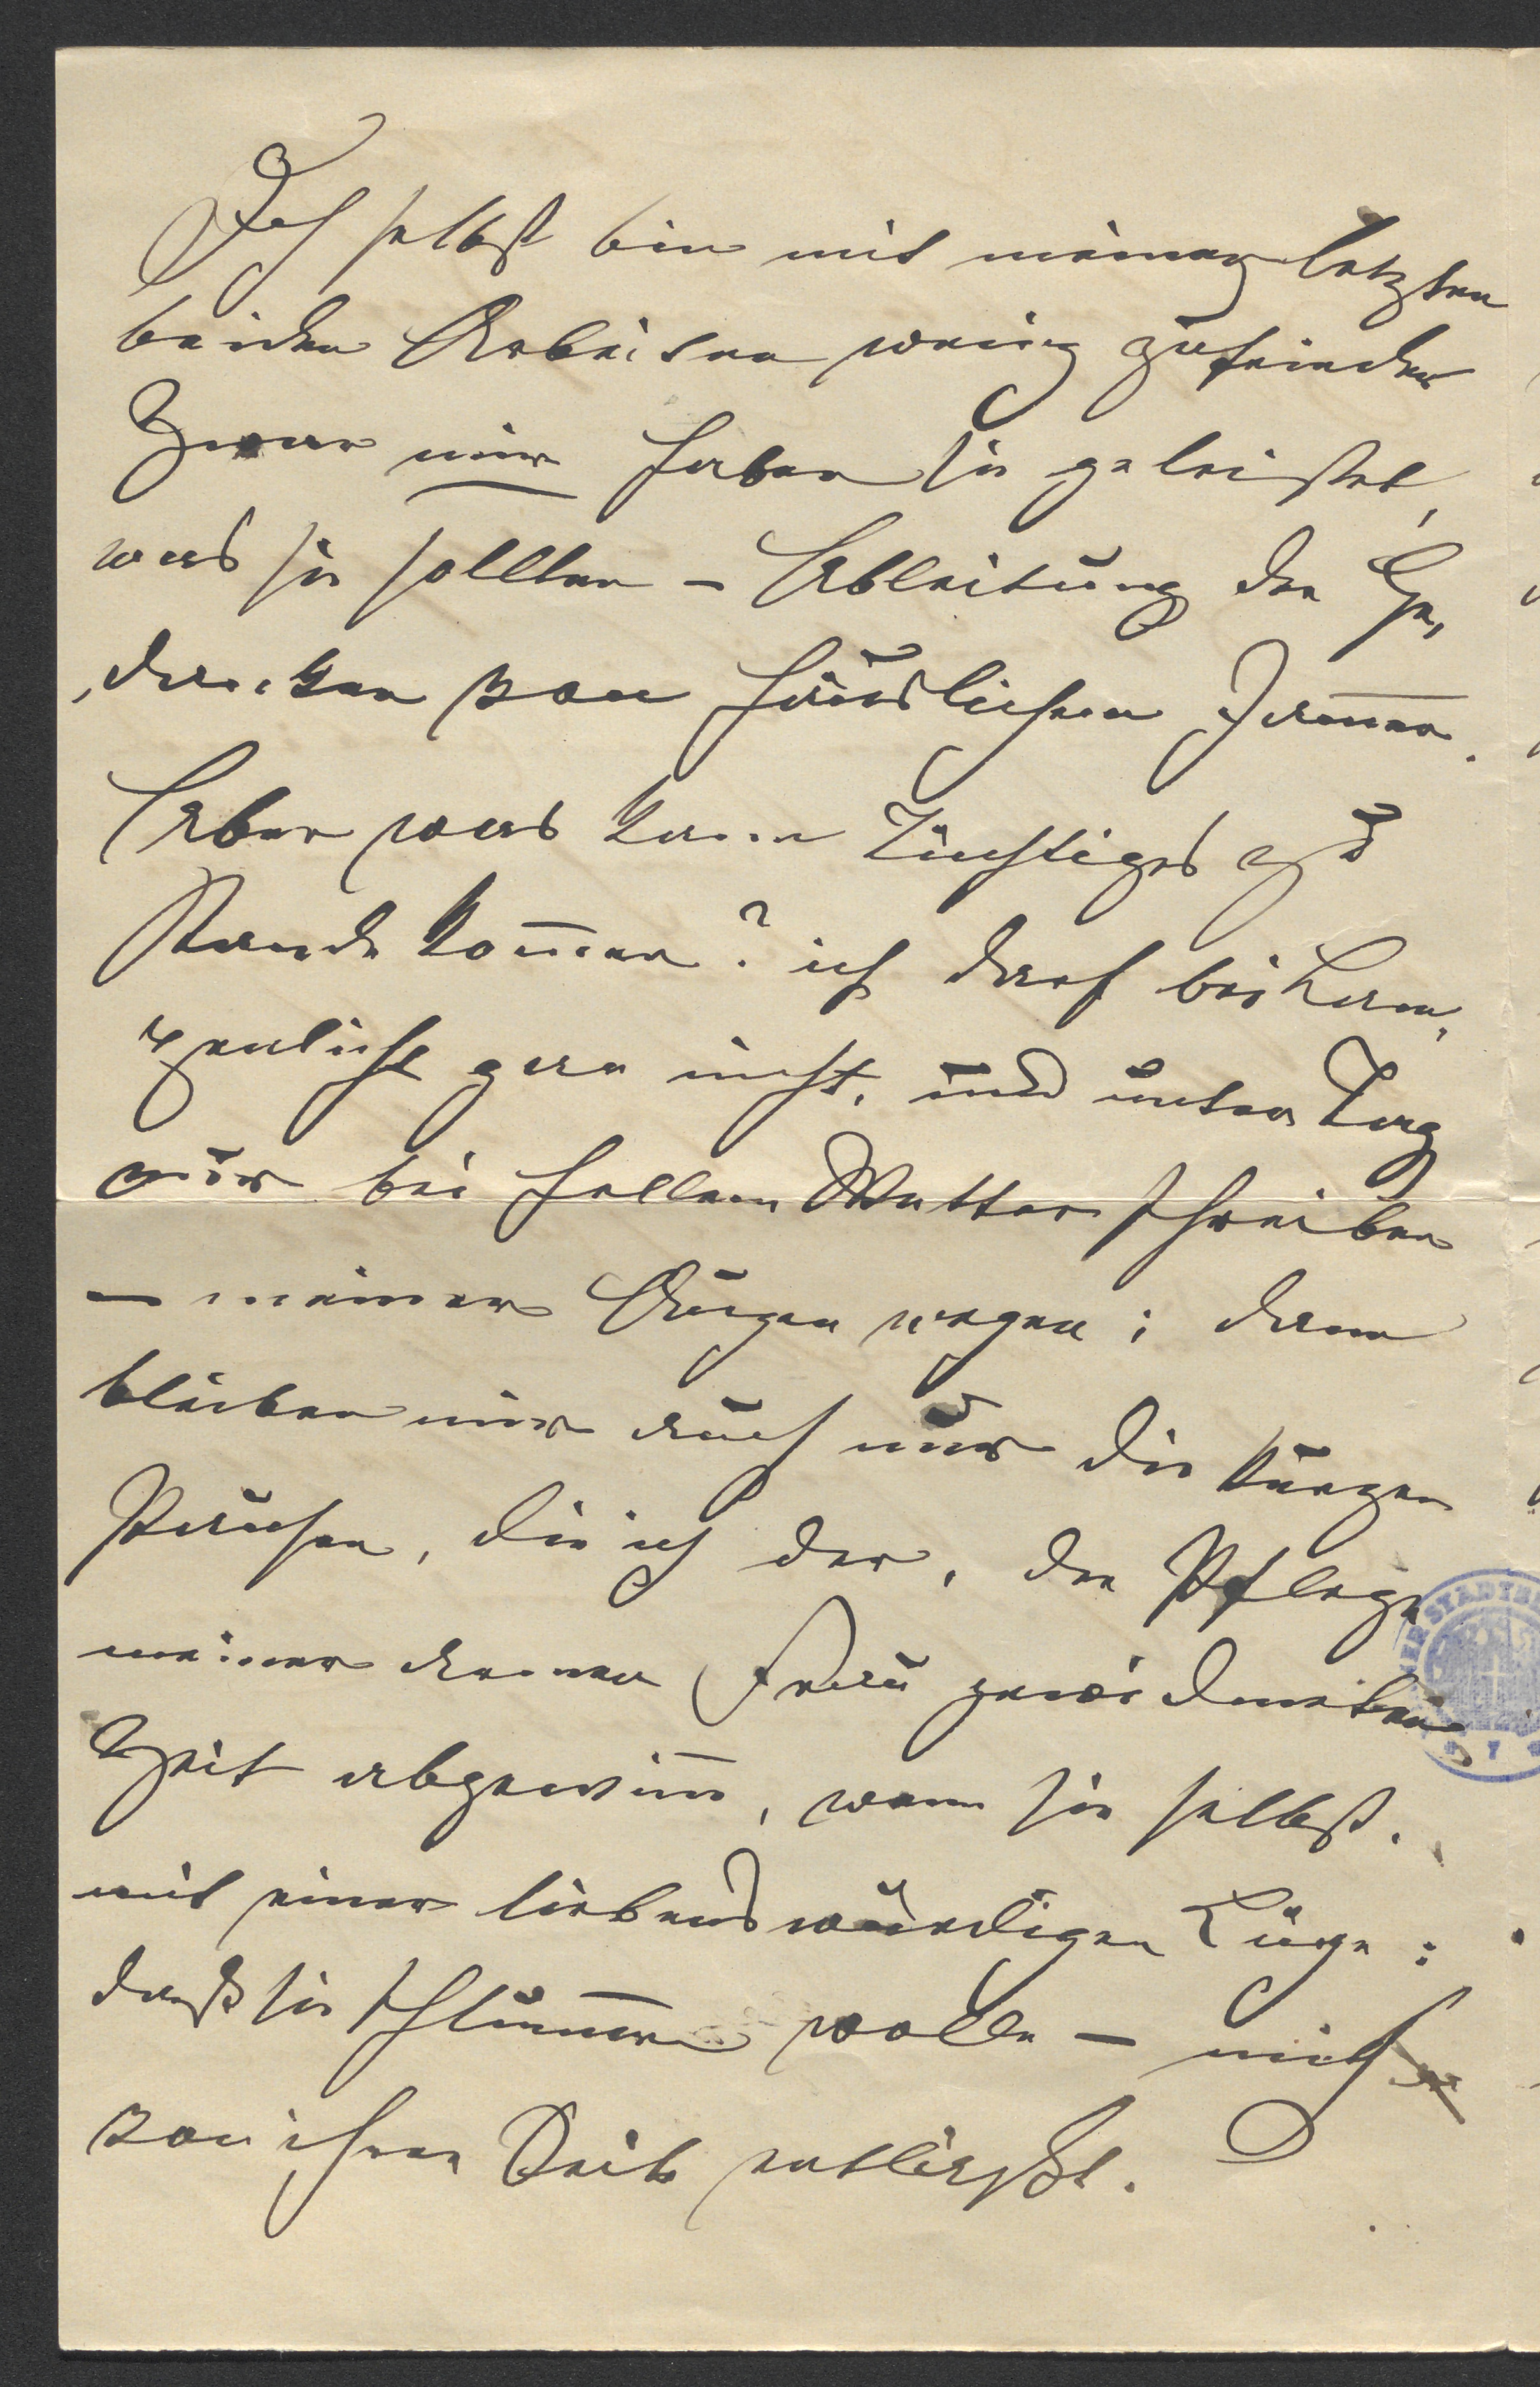 Ich selbst bin mit meinen letzten
beiden Arbeiten wenig zufrieden
Zwar mir haben sie geleistet,
was sie sollten – Ableitung der Ge,
,danken vom häuslichen Jam̅er.
Aber was kann Tüchtiges zu
Stande kom̅en? ich darf bei Lam,
penlicht gar nicht, und unter Tag
nur bei hellem Wetter schreiben
– meiner Augen wegen; dann
bleiben mir auch nur die kurzen
Pausen, die ich der, der Pflege
meiner armen Frau gewidmeten
Zeit abgewin̅e, wenn sie selbst.
mit einer liebenswürdigen Lüge:
daß sie schlum̅ern wolle – mich
von ihrer Seite entläßt.